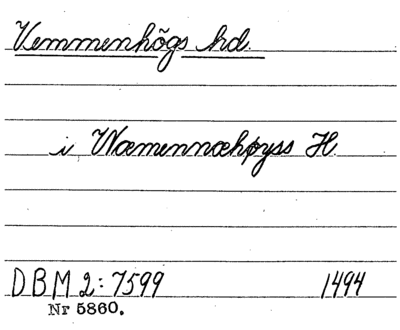 Vemmenhögs hd.
i Wæmennæhøyss H
DBM 2:7599 1494
Nr 5860.